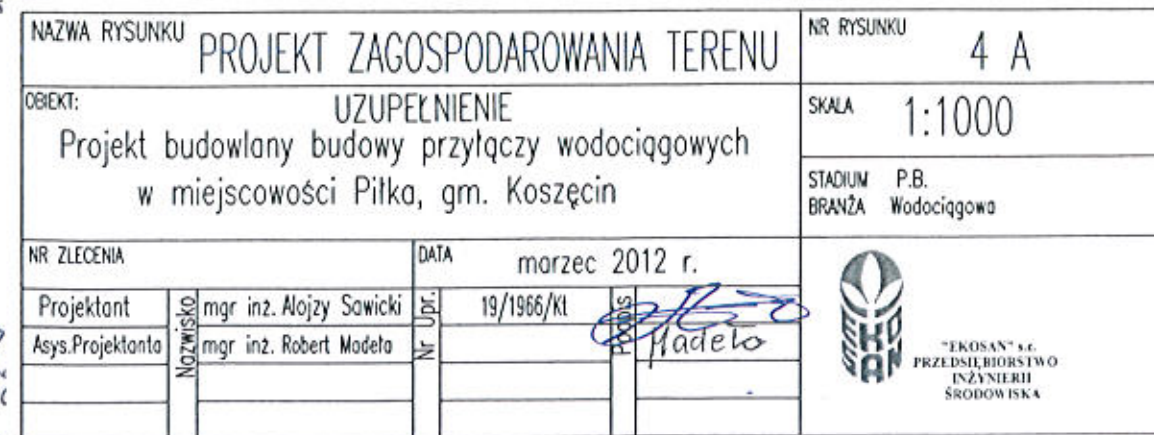 NAZWA RYSUNKU PROJEKT ZAGOSPODAROWANIA TERENU
NR RYSUNKU 4 A
OBIEKT: UZUPEŁNIENIE
Projekt budowlany budowy przyłączy wodociągowych
w miejscowości Piłka, gm. Koszęcin
SKALA 1:1000
STADIUM P.B.
BRANŻA Wodociągowa
NR ZLECENIA
DATA marzec 2012 r.
Projektant Nazwisko mgr inż. Alojzy Sawicki Nr Upr. 19/1966/Kt Podpis
Asys.Projektanta mgr inż. Robert Madeła Madeła
EKO
SAN
"EKOSAN" s.c.
PRZEDSIĘBIORSTWO
INŻYNIERII
ŚRODOWISKA